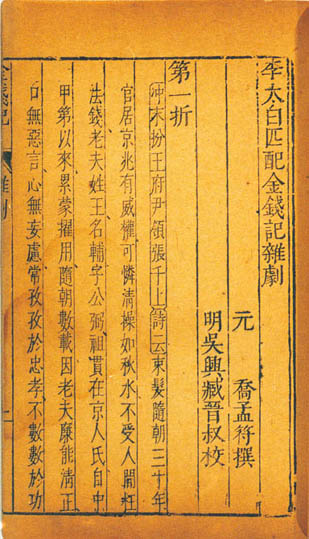 李太白匹配金錢記雜劇
元　喬孟符撰
明吳興臧晉叔校
第一折
冲末扮王府尹領張千上詩云束髮隨朝三十年
官居京兆有威權可憐清操如秋水不受人閒枉
法錢老夫姓王名輔字公弼祖貫在京人氏自中
甲第以來累蒙擢用隨朝數載因老夫廉能清正
口無惡言心無妄慮常孜孜於忠孝不數數於功
雜劇